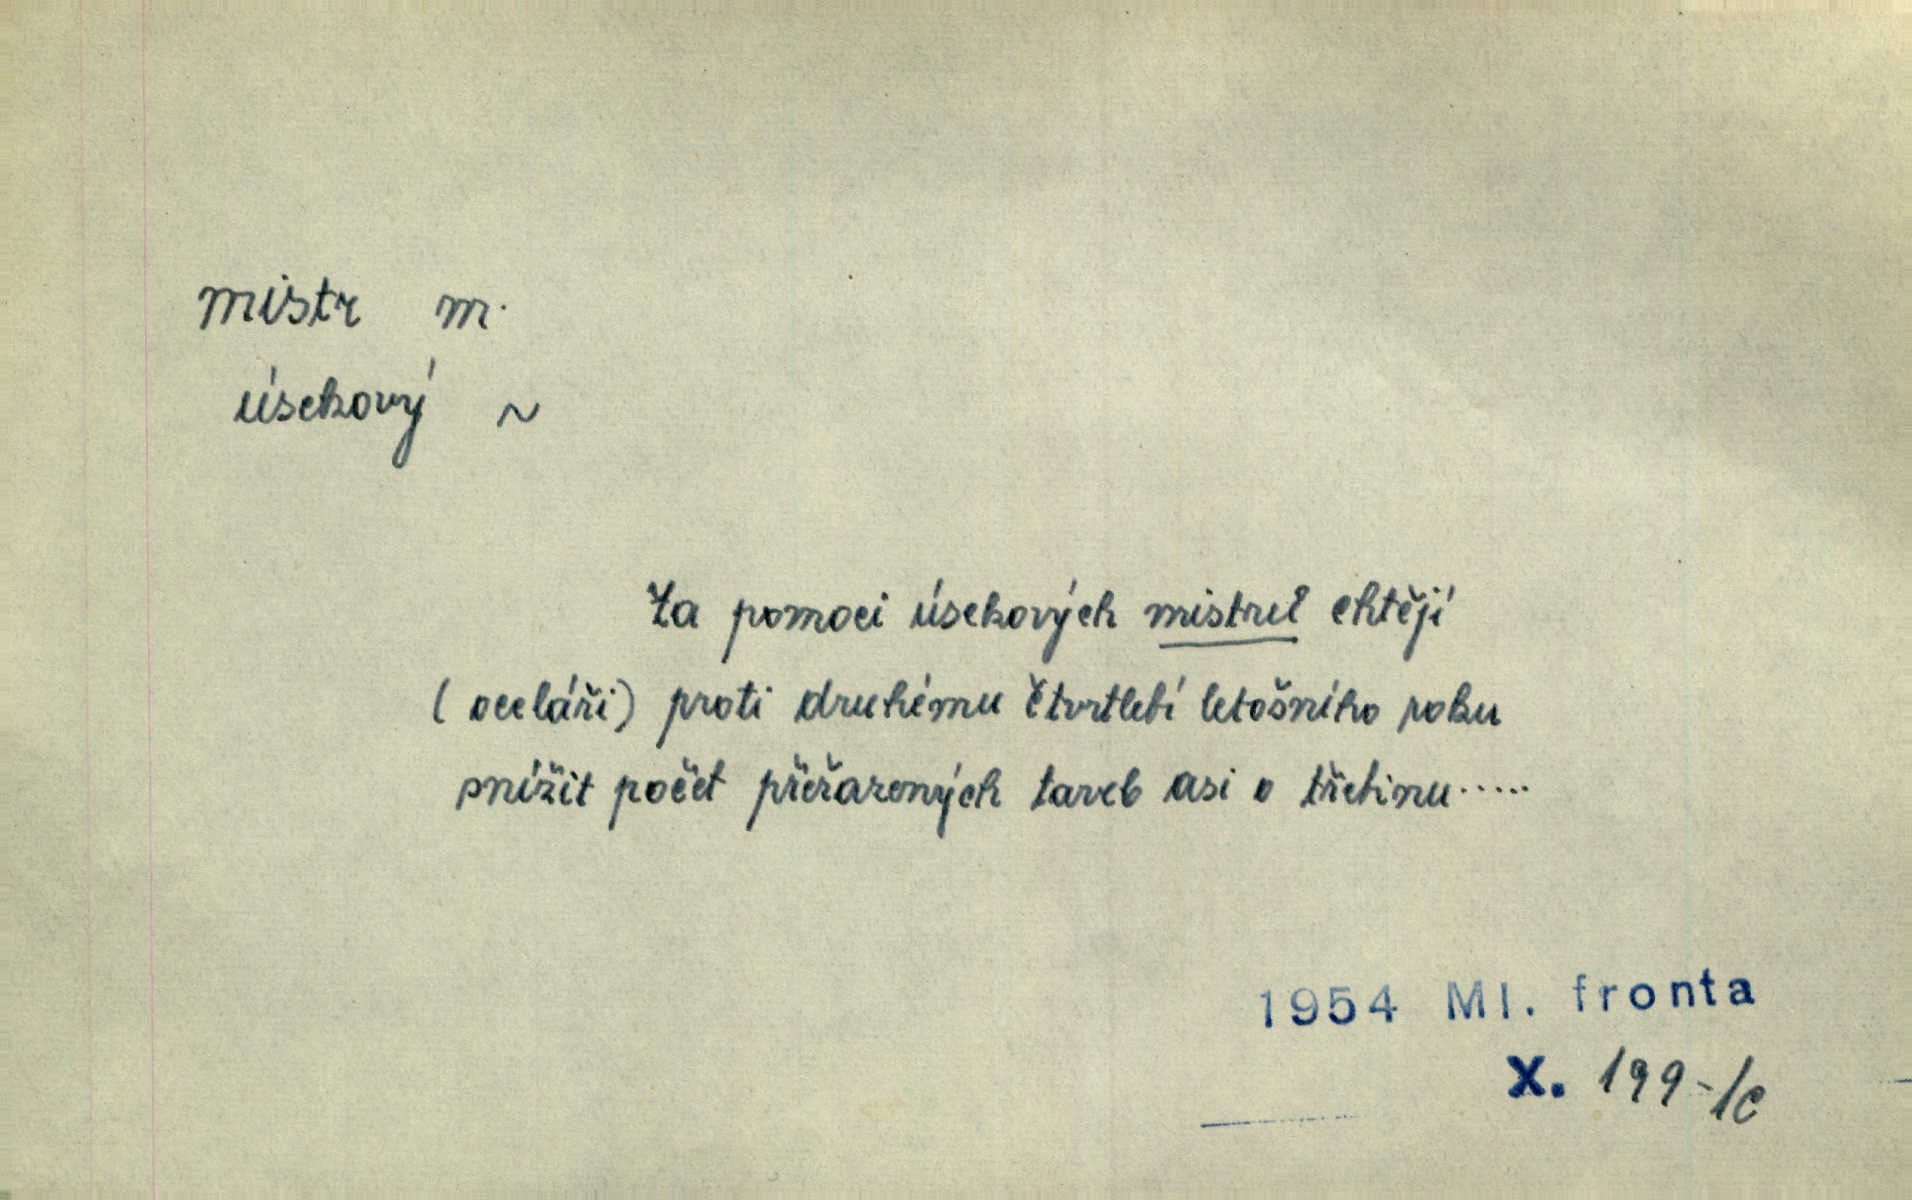 mistr m.
úsekový ~
Za pomoci úsekových mistrů chtějí
(oceláři) proti druhému čtvrtletí letošního roku
snížit počet přeřazených taveb asi o třetinu.....
1954 Ml. fronta
X. 199-/c